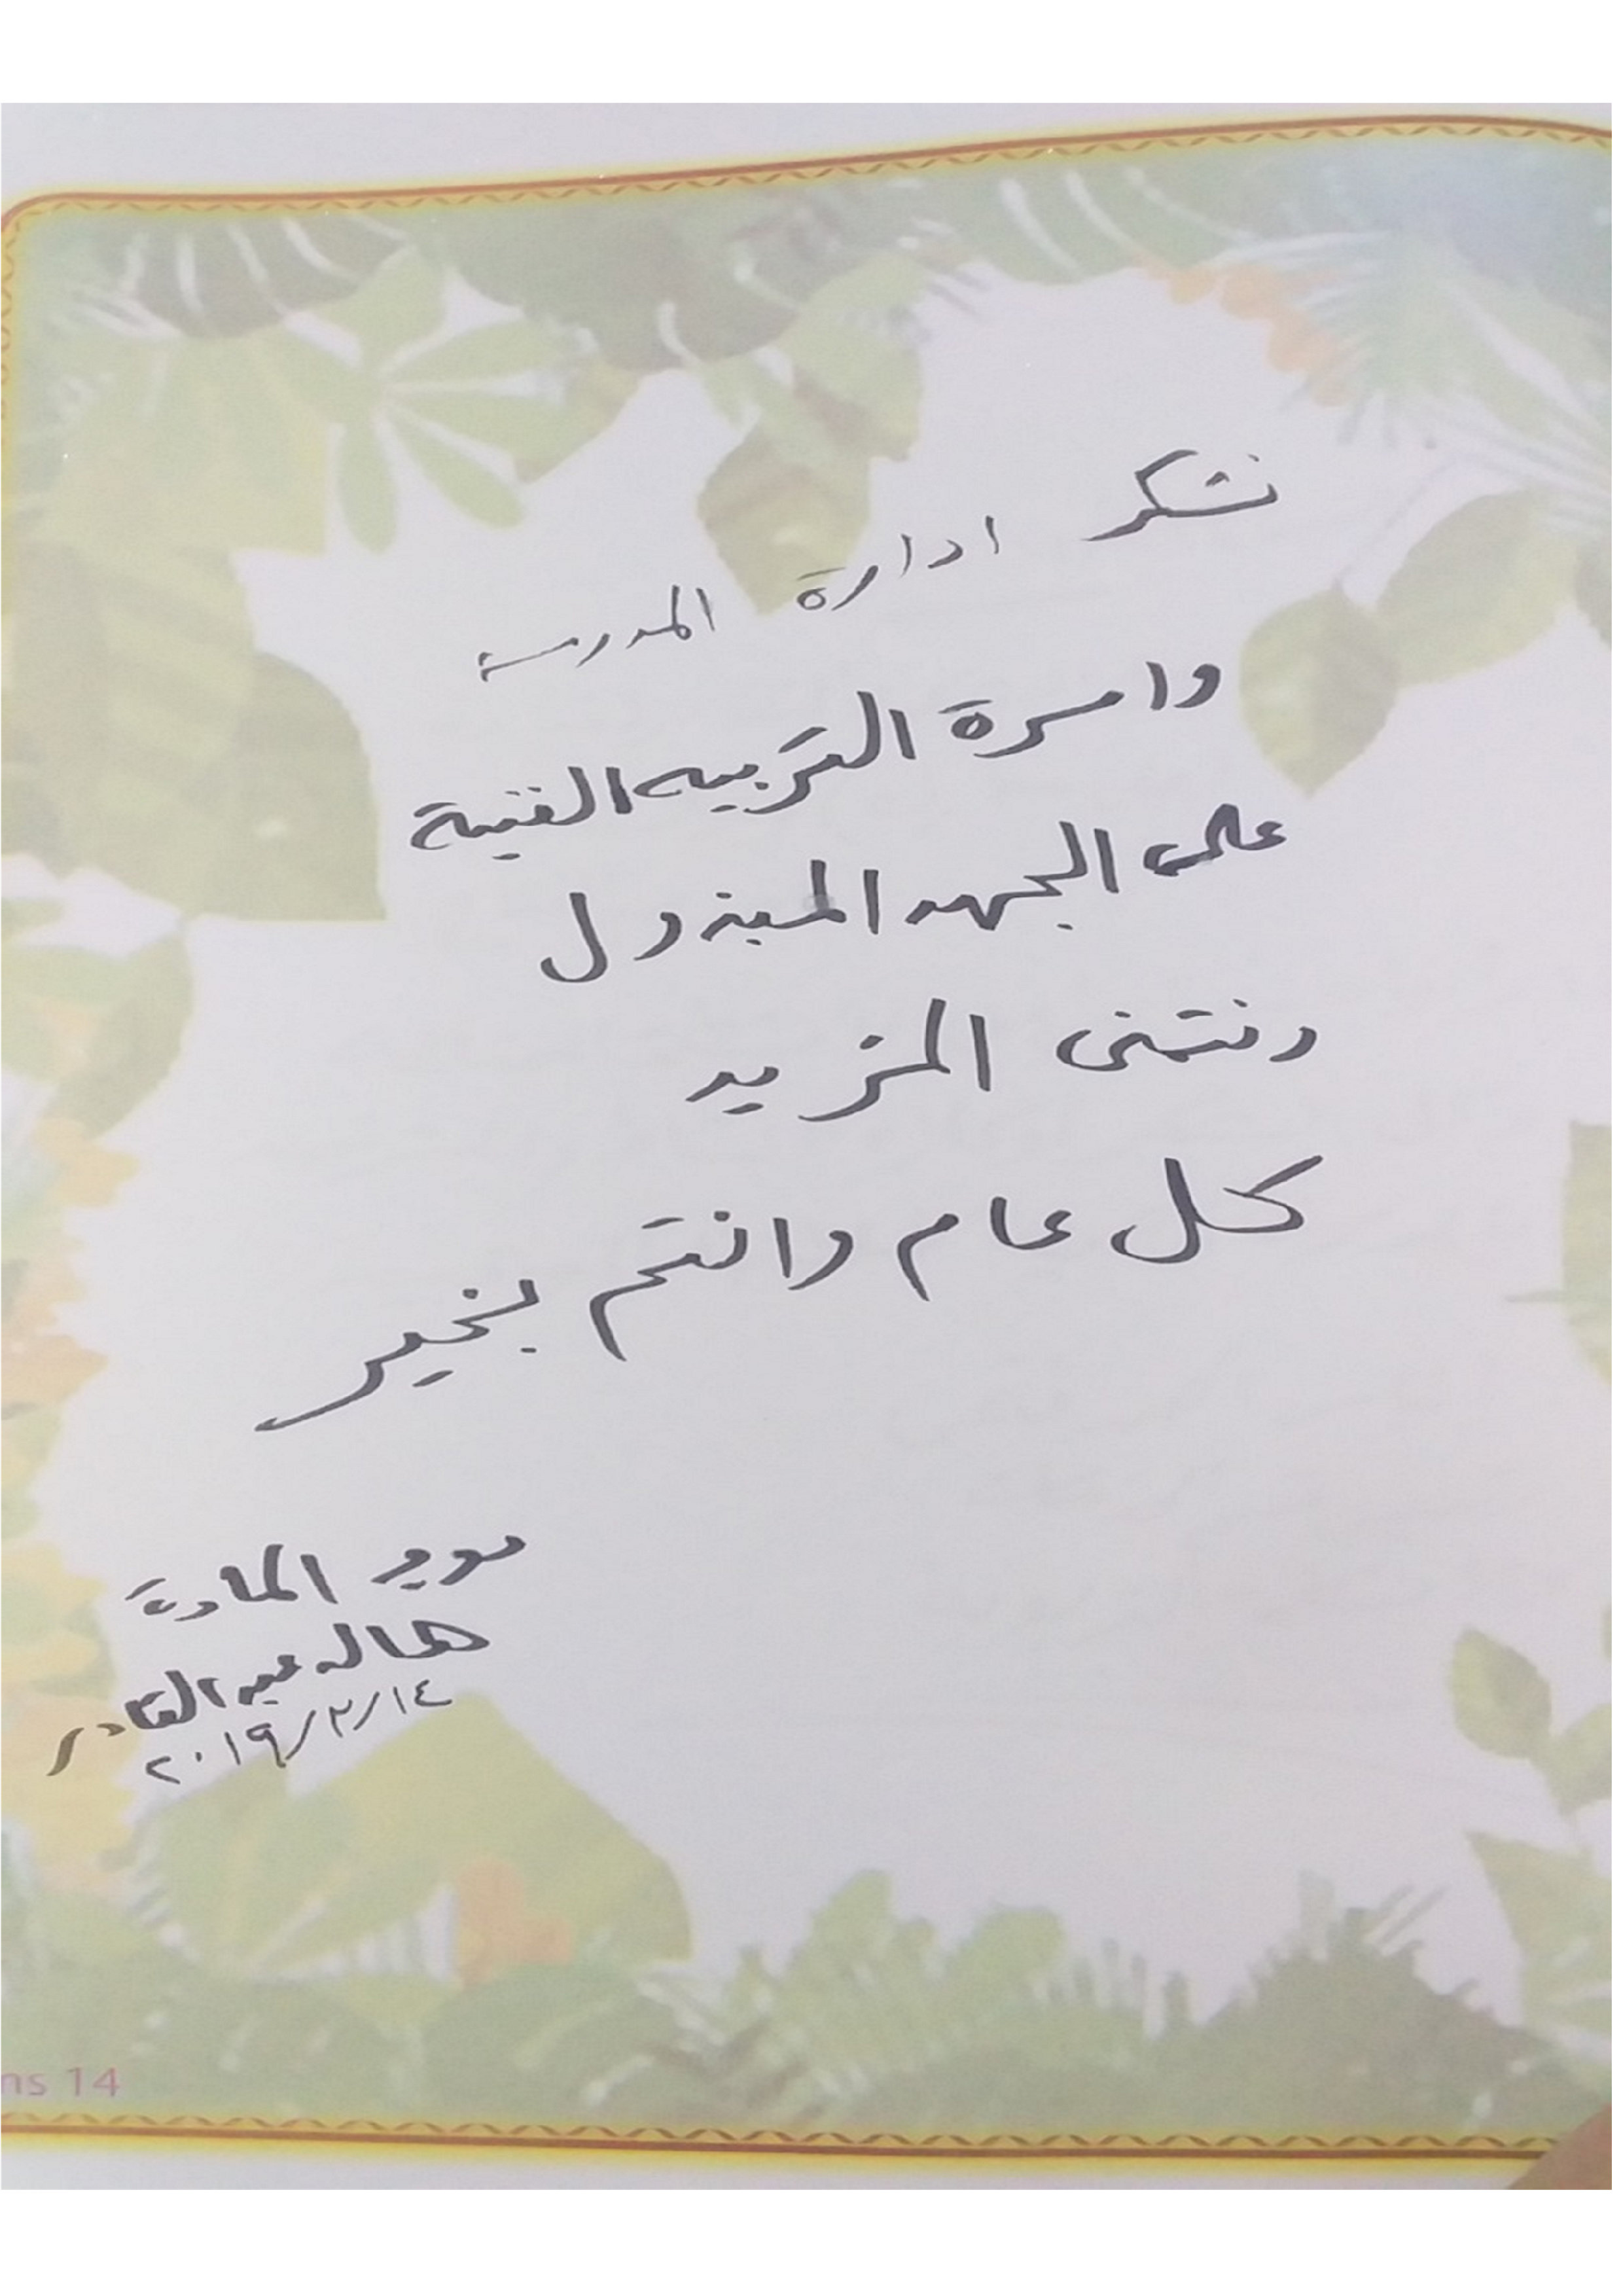 نشكر ادارة المدرسه
واسرة التربيه الفنية
على الجهد المبذول
ونتمنى المزيد
كل عام وانتم بخير
موجه المادة
هاله عبد القادر
٢٠١٩/٢/١٤
ns 14